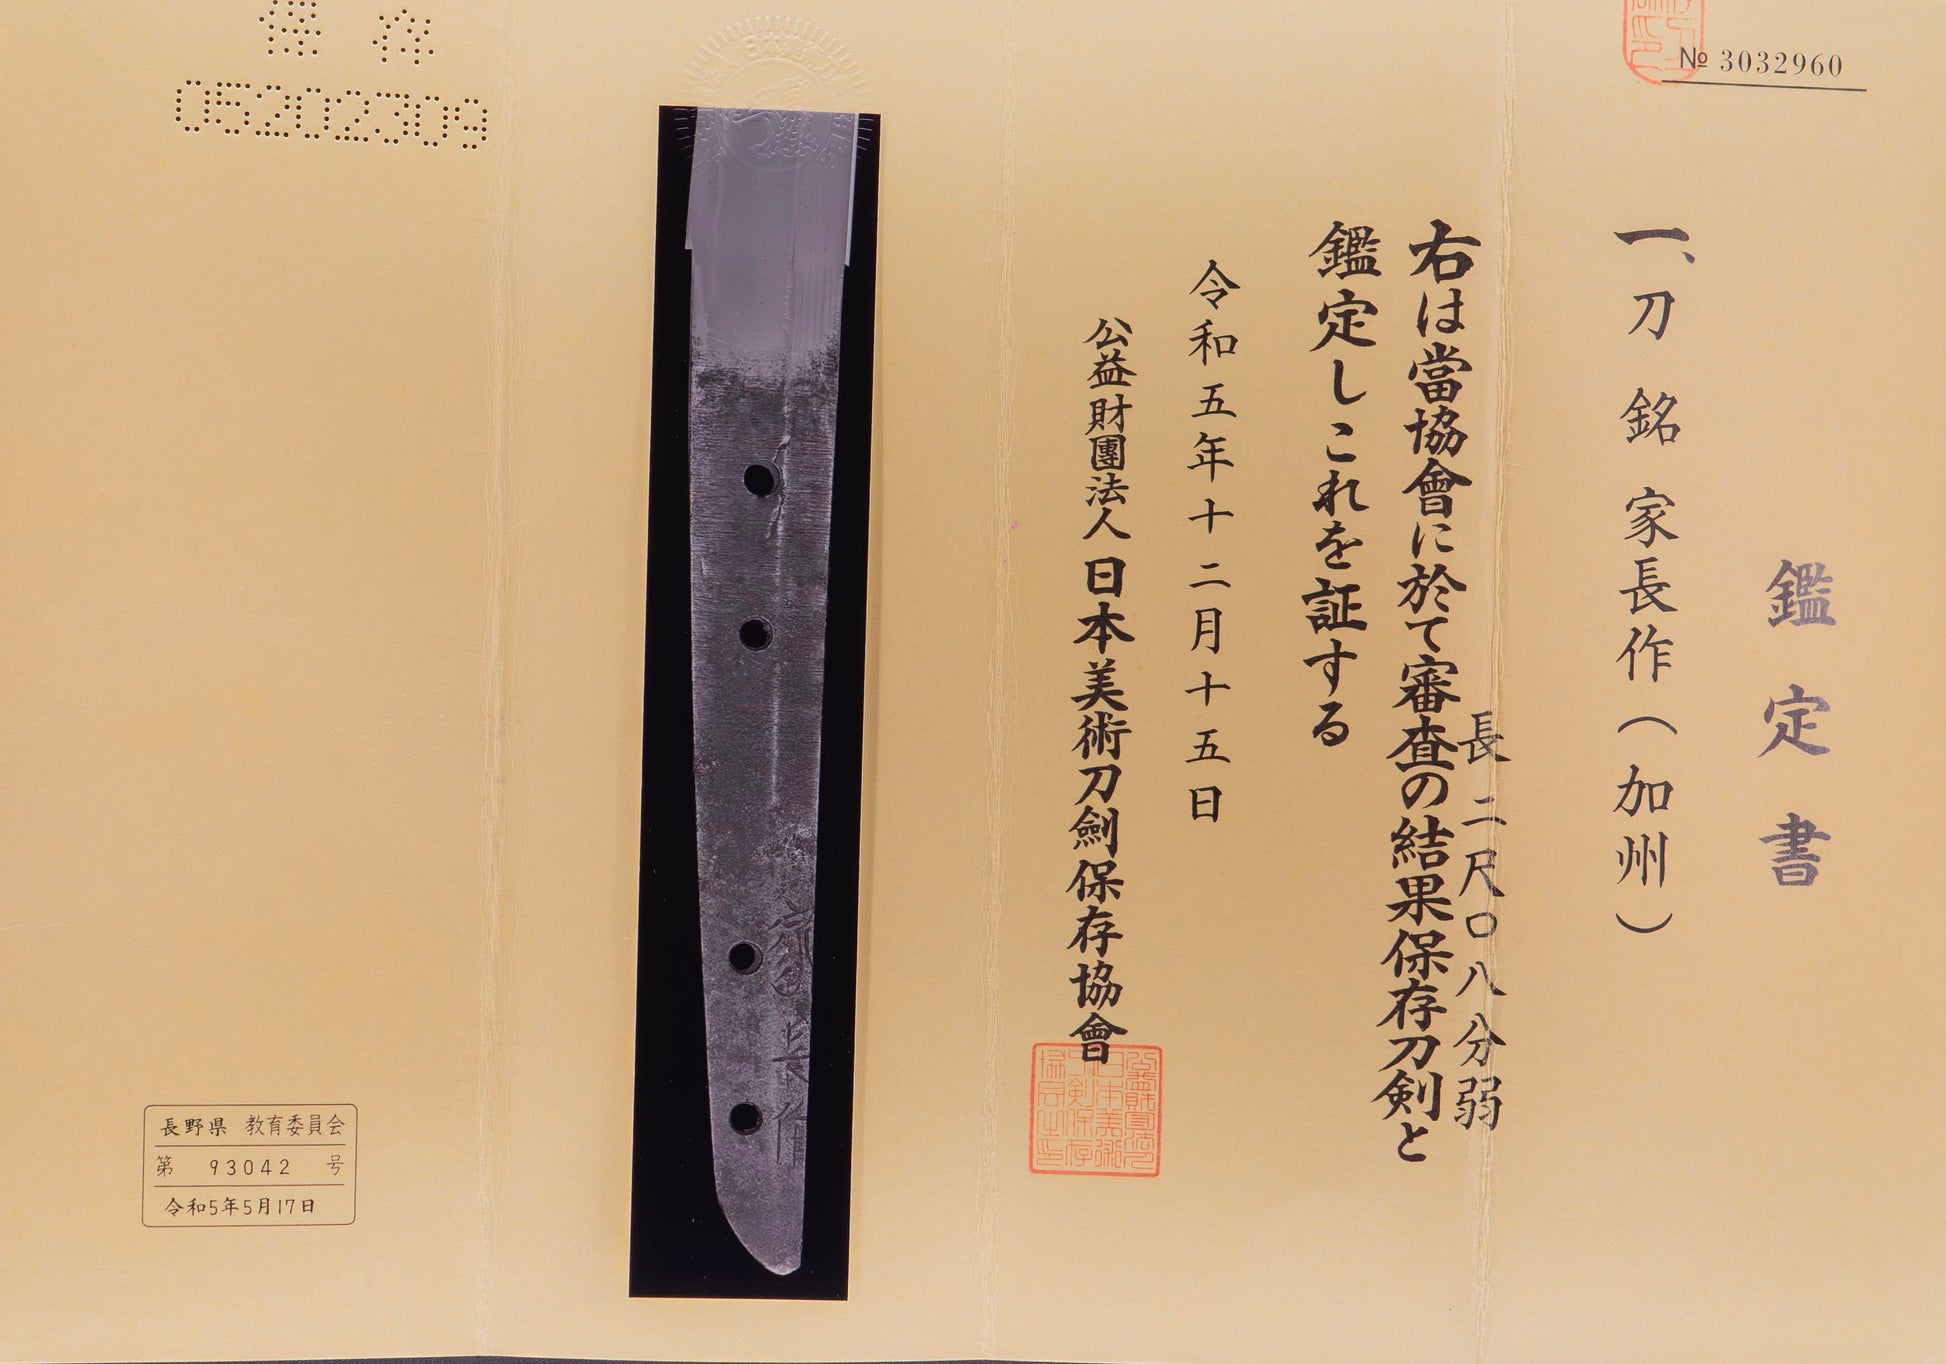 № 3032960
鑑定書
一、刀 銘 家長作(加州)
長 二尺〇八分弱
右は當協會に於て審査の結果保存刀剣と
鑑定しこれを証する
令和五年十二月十五日
公益財團法人日本美術刀劍保存協會
公益財團法人日本美術刀剣保存協会之印
家長作
保存
05202309
長野県 教育委員会
第 93042 号
令和5年5月17日